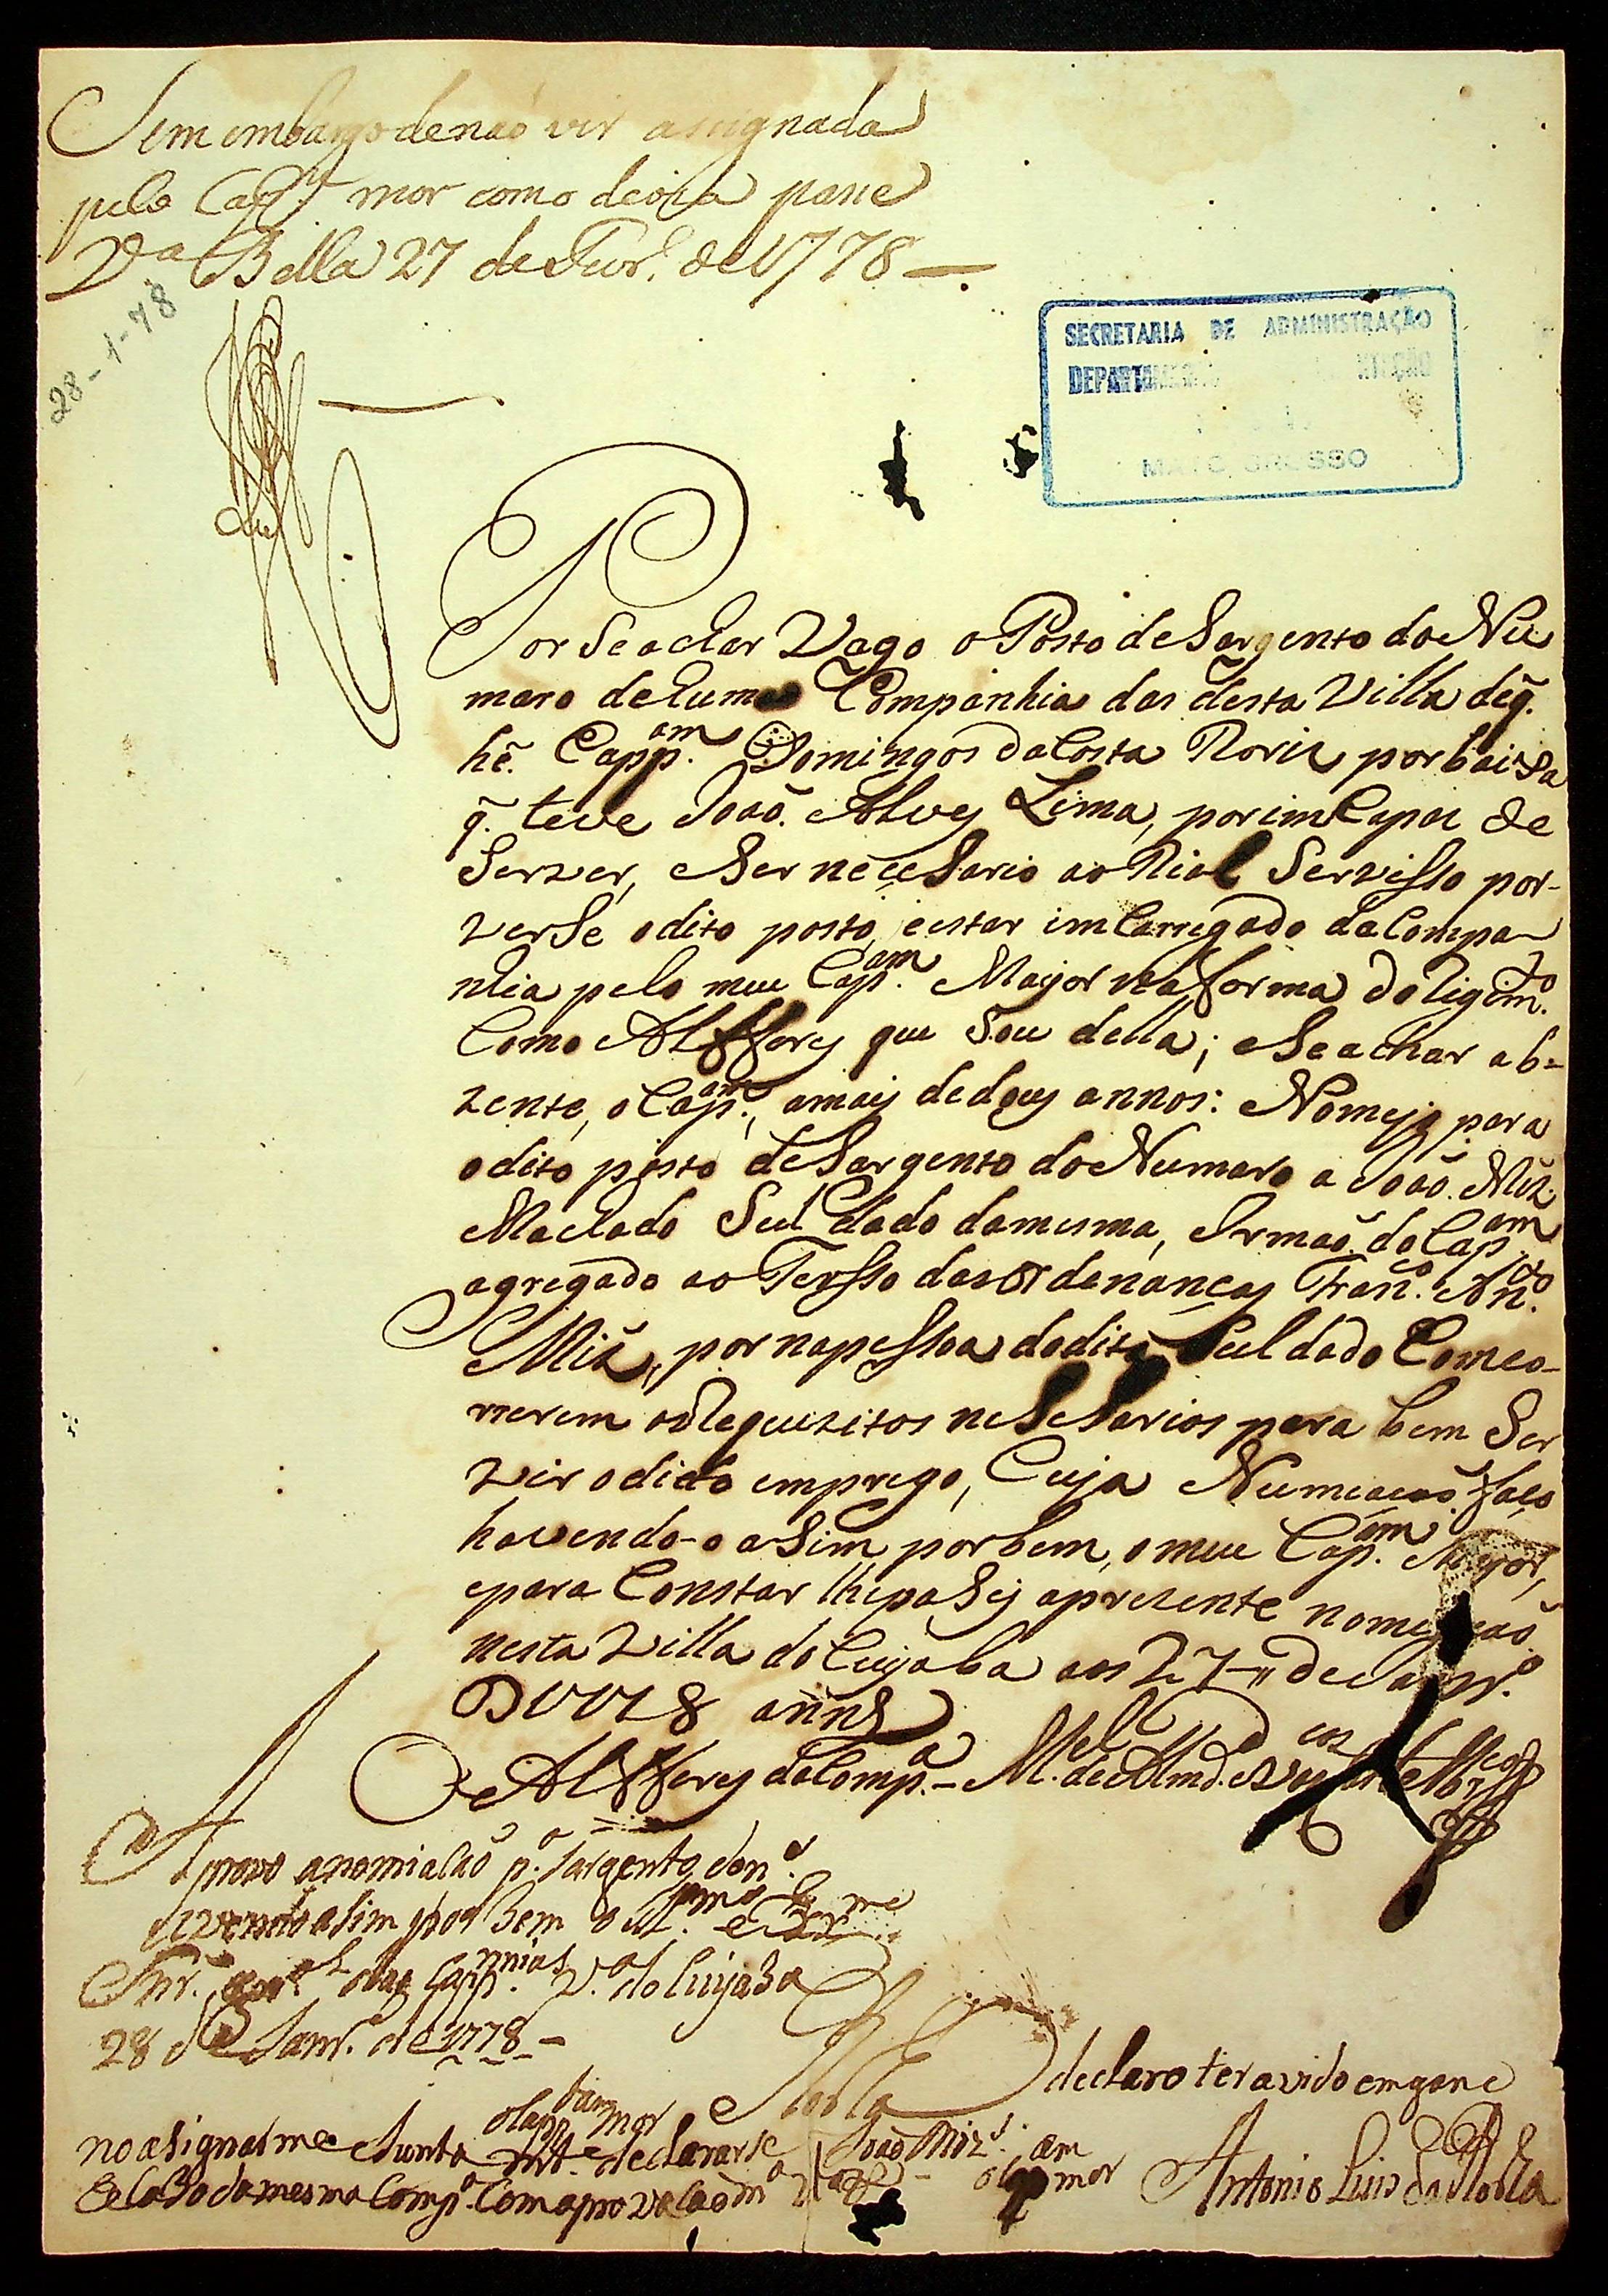 Sem embargo de naõ vir assignada
pelo Capp.m mor como devia passe
V.a Bella 27 de Fevr.o de 1778
28-1-78
SECRETARIA DE ADMINISTRAÇÃO
MATO GROSSO
Por Se achar Vago o Posto de Sargento do Nu
maro de huma Companhia das desta Villa de q̃.
hé. Capp.am Domingos da Costa Roriz por baixa
q̃. teve Joaõ. Alves Lima, por imCapas de
Server, e Ser neceSario ao Rial Serviso por-
verSe o dito posto, e estar imCarregado da Compa-
nhia pelo meu Cap.am Mayor na forma do Rigim.to
Como Alfferes que Sou della; e Se achar ab=
zente, o Cap.am, a mais de dous annos: Nomeyo para
o dito posto de Sargento do Numaro a Joaõ. Miz̃
Machado Sul dado da mesma, Irmaõ. do Cap.am
agregado ao Tersso das Ordenanças Fran.co An.to
Miz̃, por na pessoa do dito Sul dado Comco-
rrerem os Requizitos neSeSarios para bem Ser
vir o dito emprego, Cuja Numiacaõ. faço
havendo-o aSim por bem, o meu Cap.am Mayor,
e para Constar lhe paSey a prezente nomeyacaõ.
nesta Villa do Cuyaba aos 27 de Janr.o
D 1778 annS
O Alfferes da Comp.a - M.el de Alm.d
Aprovo a nomiacaõ p.a Sargento do n.o
avendo asim por bem o Il.mo e Ex.mo
Snr. Gen.al das Capp.nias V.a do Cuyaba
28 de Janr.o de 1778 -
Rocha
declaro ter avido emgano
no asignarme e Junta m.te declararse
o Capp.tam mor
Joaõ Miz̃
o Cap.am mor
e Cabo da mesma Comp.a Com aprovacaõ
Antonio Luis da Rocha